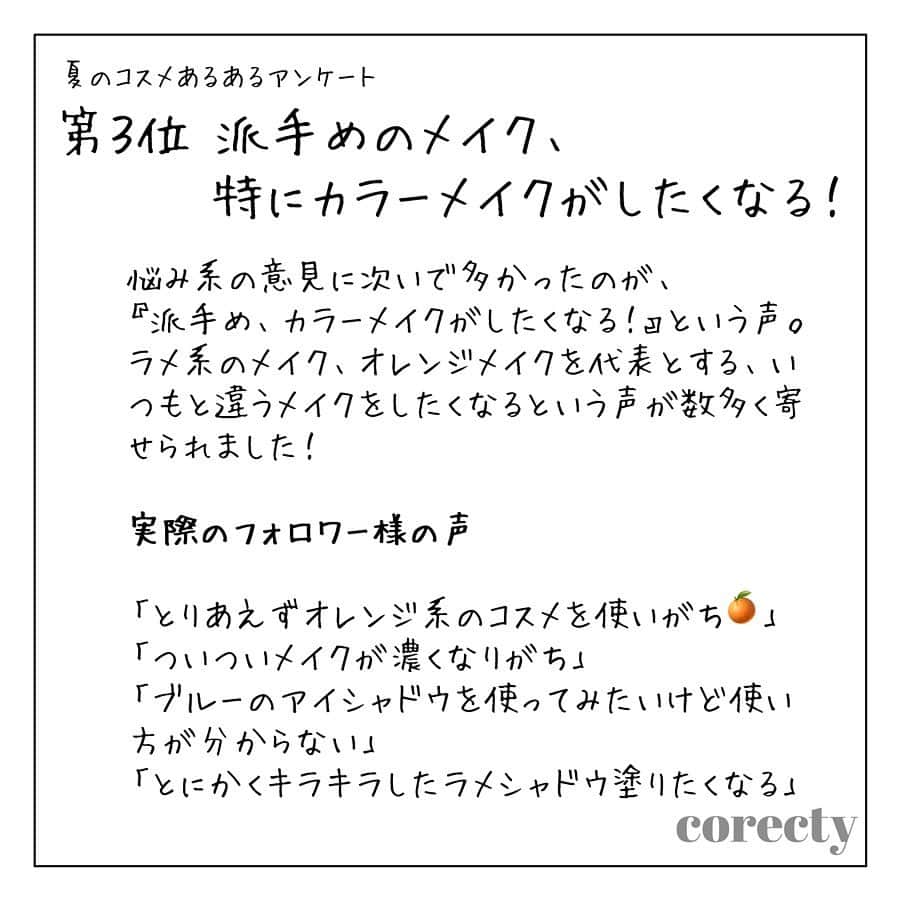 夏のコスメあるあるアンケート
第3位 派手めのメイク、
特にカラーメイクがしたくなる!
悩み系の意見に次いで多かったのが、
『派手め、カラーメイクがしたくなる!』という声。
ラメ系のメイク、オレンジメイクを代表とする、い
つもと違うメイクをしたくなるという声が数多く寄
せられました!
実際のフォロワー様の声
「とりあえずオレンジ系のコスメを使いがち🍊」
「ついついメイクが濃くなりがち」
「ブルーのアイシャドウを使ってみたいけど使い
方が分からない」
「とにかくキラキラしたラメシャドウ塗りたくなる」
corecty